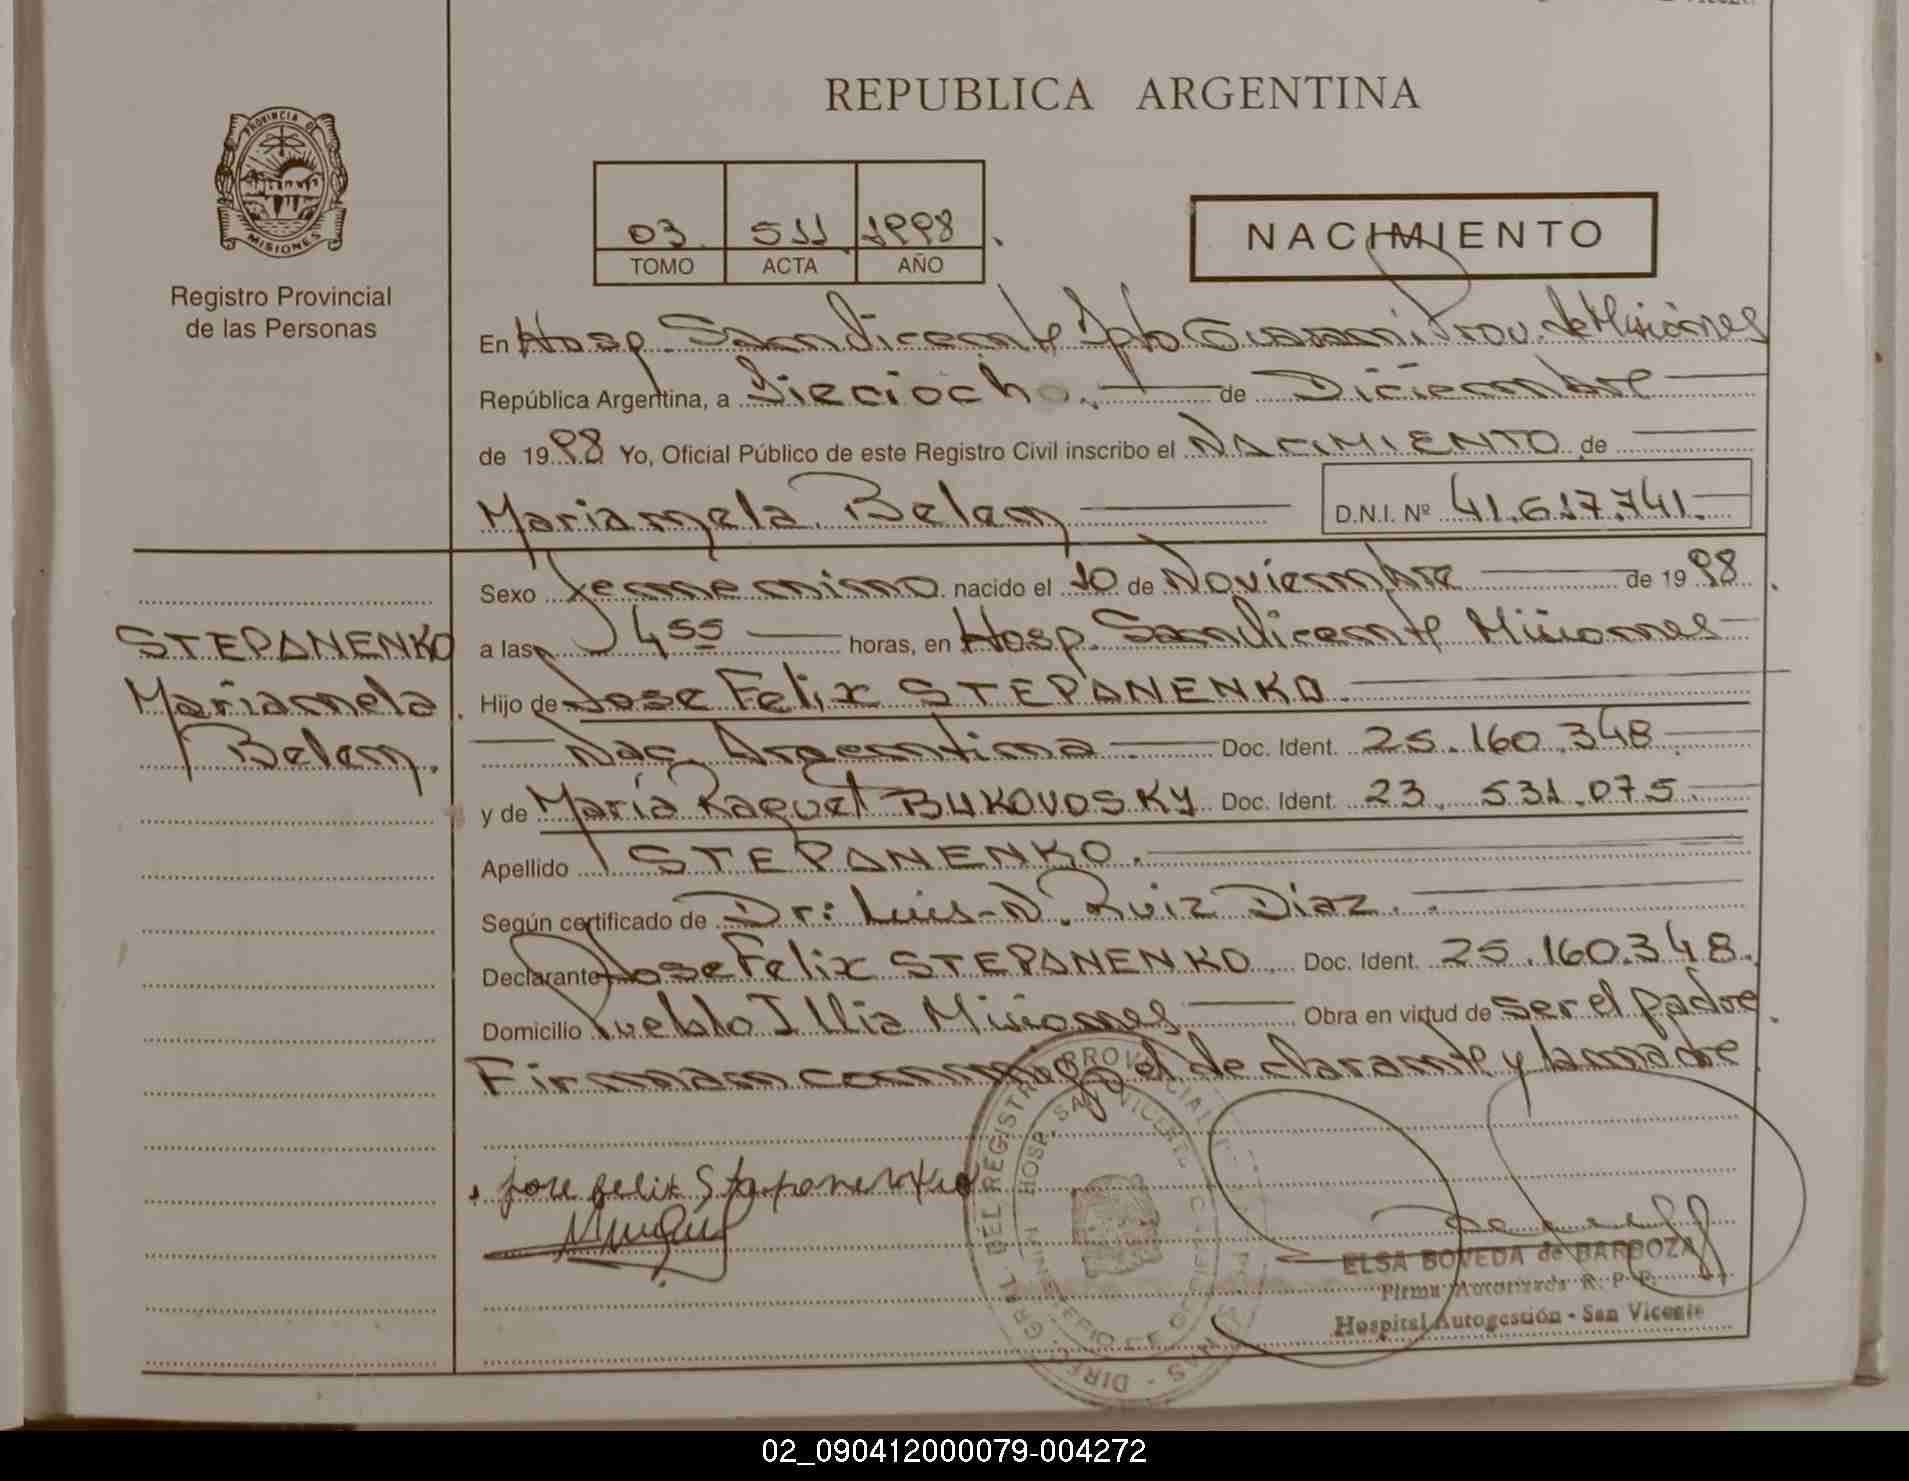 REPUBLICA ARGENTINA
PROVINCIA DE
MISIONES
Registro Provincial
de las Personas
03 511 1998
TOMO ACTA AÑO
NACIMIENTO
En Hosp. San Vicente Dpto Guarani Prov. de Misiones
República Argentina, a Dieciocho. de Diciembre
de 1998 Yo, Oficial Público de este Registro Civil inscribo el NACIMIENTO de
Mariangela Belen D.N.I. Nº 41.617.741.
STEPANENKO
Mariangela
Belen.
Sexo femenino nacido el 10 de Noviembre de 1998
a las 4 55 horas, en Hosp. San Vicente Misiones
Hijo de Jose Felix STEPANENKO
Nac. Argentina Doc. Ident. 25.160.348
y de María Raquel BUKOVOSKY Doc. Ident. 23.531.075
Apellido STEPANENKO.
Según certificado de Dr: Luis A. Ruiz Diaz.
Declarante Jose Felix STEPANENKO Doc. Ident. 25.160.348.
Domicilio Pueblo Illia Misiones Obra en virtud de ser el padre
Firman conmigo el declarante y la madre
jose felix Steponenko
ELSA BOVEDA de BARBOZA
Firma Autorizada R. P. P.
Hospital Autogestión - San Vicente
02_090412000079-004272